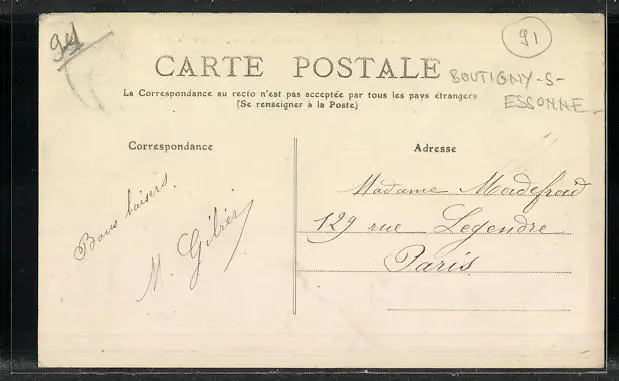 94
91
CARTE POSTALE
BOUTIGNY-S-
ESSONNE
La Correspondance au recto n'est pas acceptée par tous les pays étrangers
(Se renseigner à la Poste)
Correspondance
Bons baisers.
M. Gélier
Adresse
Madame
129 rue Legendre
Paris